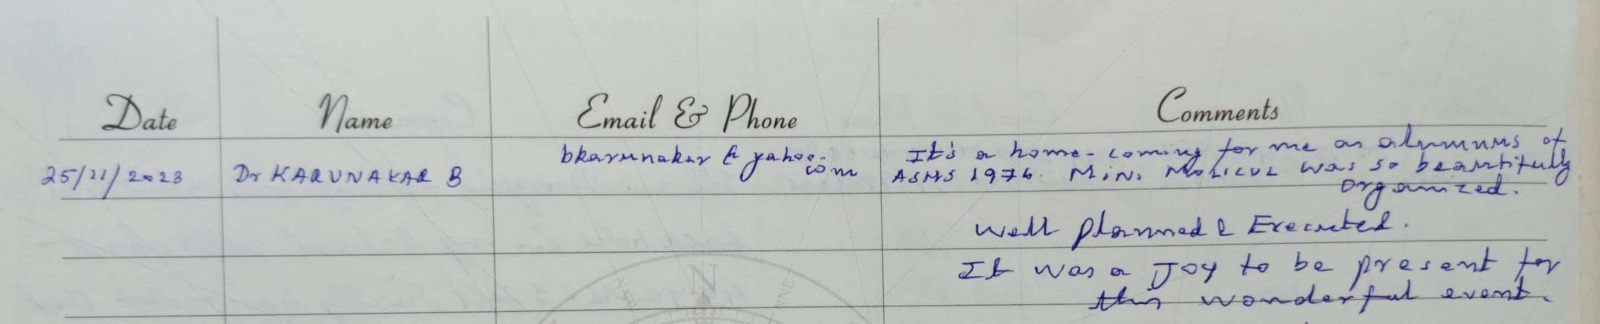 Date Name Email & Phone Comments
25/11/2023 Dr KARUNAKAR B bkarunakar @ yahoo.
com
It's a home-coming for me an alumnus of
ASMS 1976. Mini was so beautifully
organized.
Well planned & Executed.
It was a Joy to be present for
this wonderful event.
N